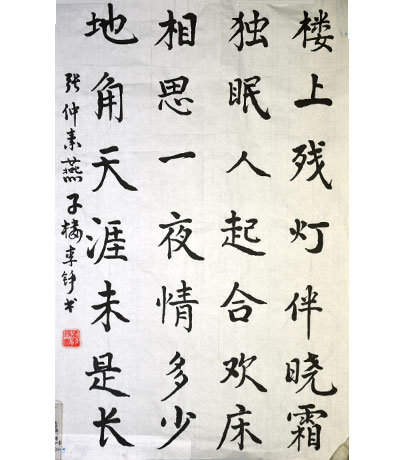 楼上残灯伴晓霜
独眠人起合欢床
相思一夜情多少
地角天涯未是长
张仲素燕子楼李铮书